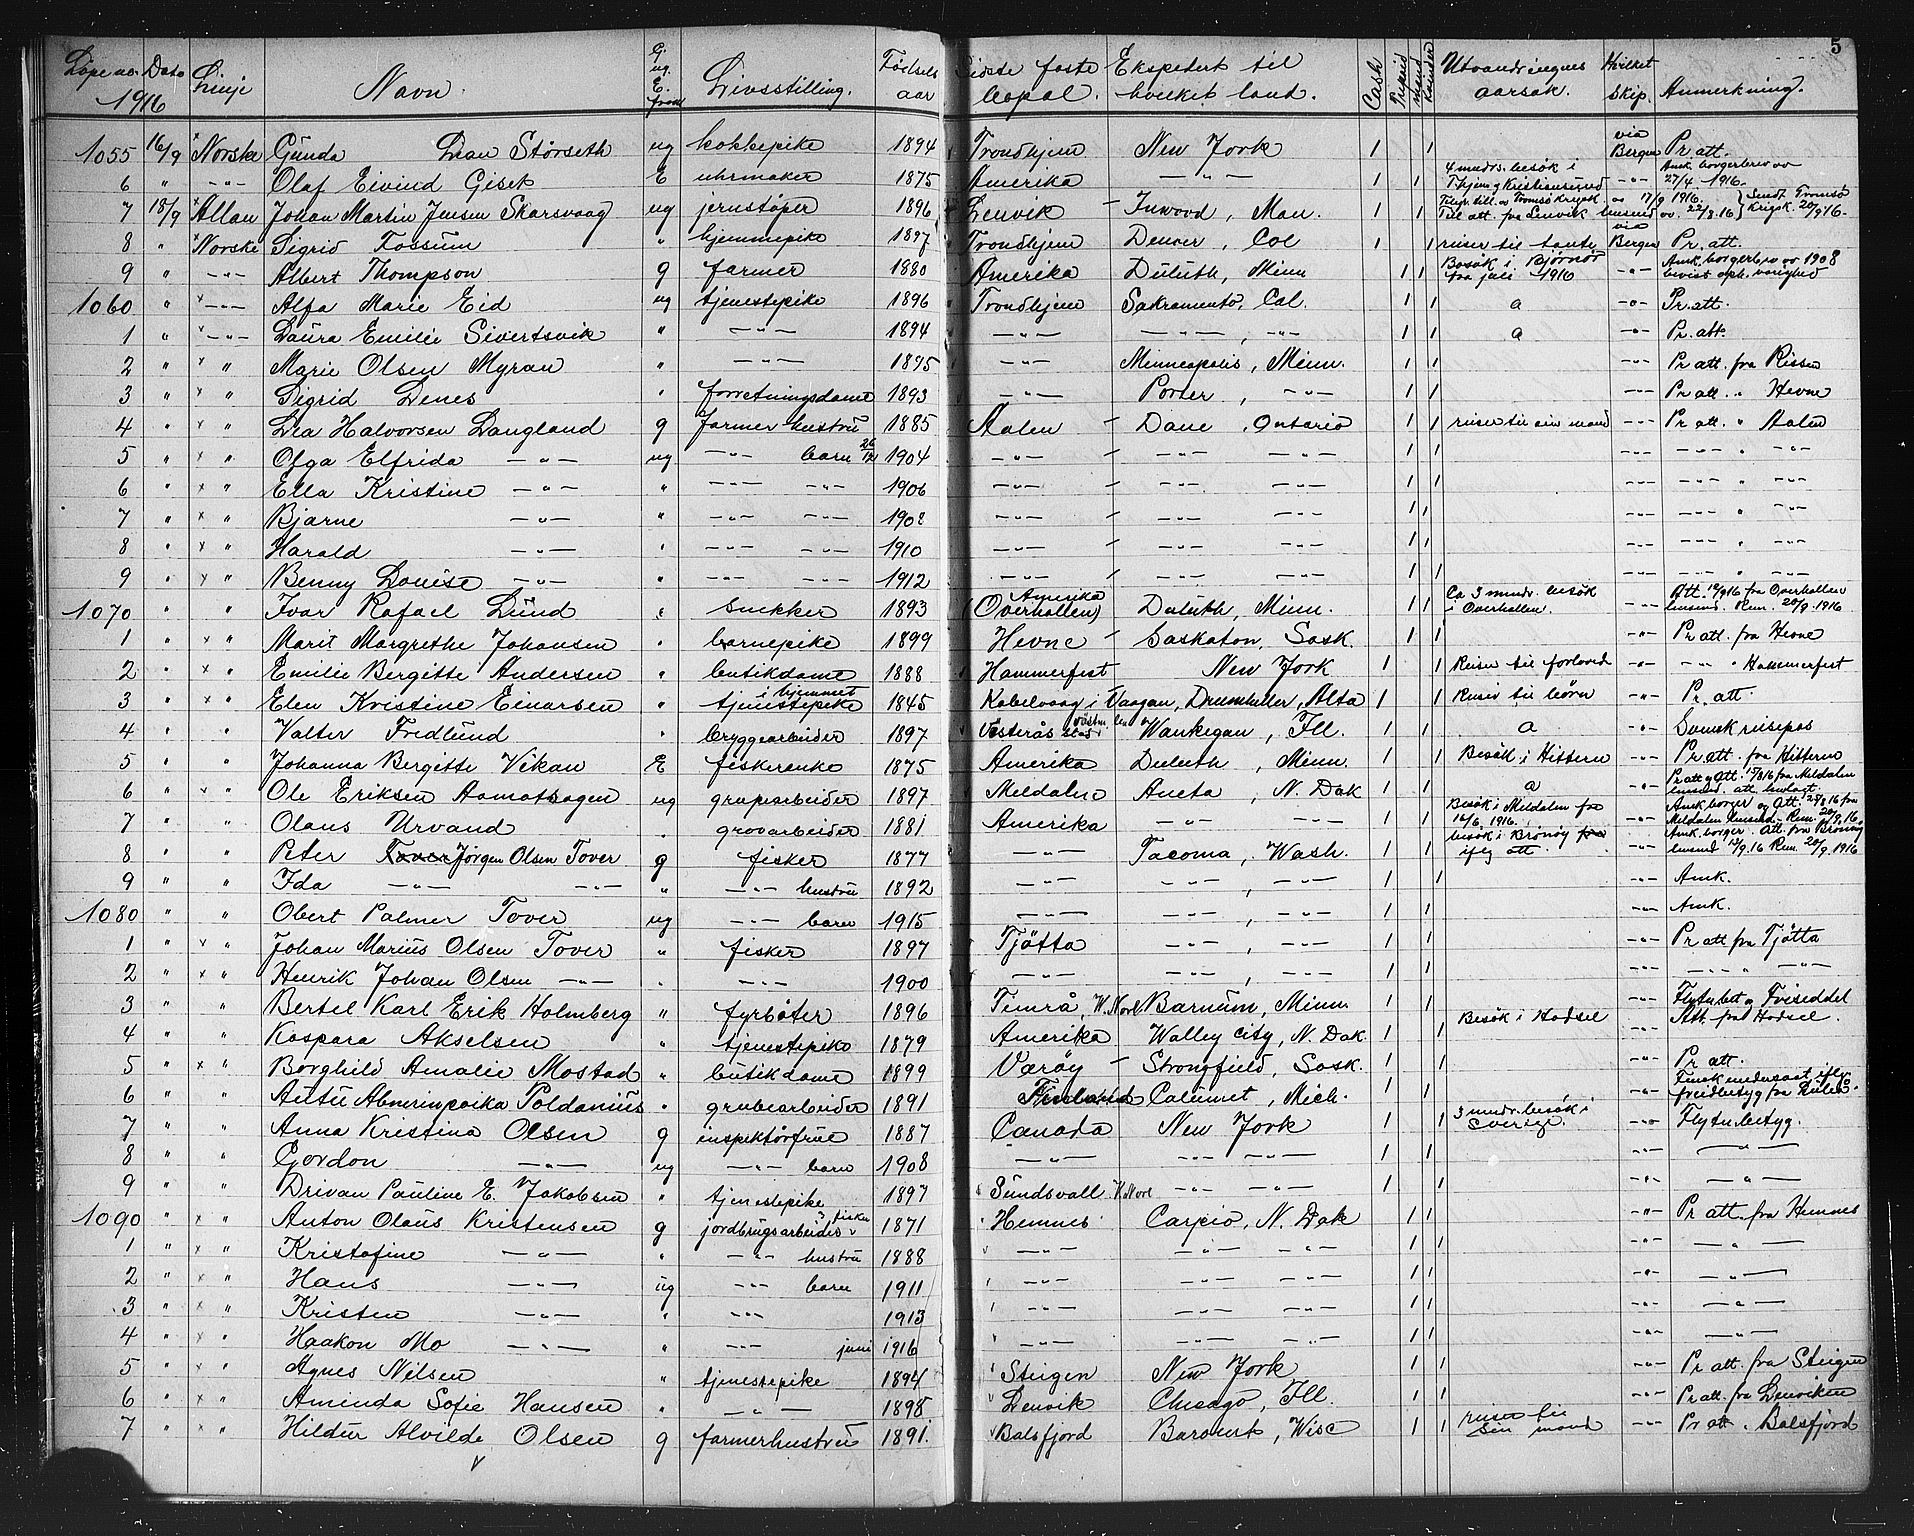 5
Löpe no. Dato Linje Navn. G. ug. E. frask. Livsstilling. Födselsaar Sidste faste bopæl. Ekspedert til hvilket land. Cash Prepaid Mænd Kvinder Utvandringens aarsak. Hvilket Skip. Anmerkning.
1916
1055 16/9 Norske Gunda Lian Störseth ug kokkepike 1894 Trondhjem New York 1 1 via Bergen Pr. att.
6 " -"- Olaf Eivind Giset E uhrmaker 1875 Amerika -"- 1 1 4 mndrs. besök i Thjem og Kristiansund -"- Amk. borgerbrev av 27/4 - 1916.
7 18/9 Allan Johan Martin Jensen Skarsvaag ug jernstöper 1896 Lenvik Inwood, Man. 1 1 Til att. fra Lenvik lensmd av 22/8.16 Sendt Tromsö Krigsk. 20/9 16.
8 " Norske Sigrid Fossum " hjemmepike 1897 Trondhjem Denver, Col 1 1 reiser til tante via Bergen Pr. att.
9 " -"- Albert Thompson g farmer 1880 Amerika Duluth, Minn 1 1 Besök i Bjørnör fra juli 1916 -"- Amk. borgerbrev av 1908 bevist oph. varighed
1060 " -"- Alfa Marie Eid ug tjenestepike 1896 Trondhjem Sakramento, Cal. 1 1 a -"- Pr. att.
1 " -"- Laura Emilie Sivertsvik " -"- 1894 -"- -"-, -"- 1 1 a -"- Pr. att.
2 " " Marie Olsen Myran " -"- 1895 -"- Minneapolis, Minn. 1 1 -"- Pr att. fra Rissen
3 " " Sigrid Lenes " forretningsdame 1893 -"- Porter, -"- 1 1 -"- Pr att. " Hevne
4 " " Lea Halvorsen Langland g farmer hustru 1885 Aalen Dane, Ontario 1 1 reiser til sin mand -"- Pr att. " Aalen
5 " " Olga Elfrida -"- ug -"- barn 26/12 1904 -"- -"- -"- 1 1 -"- -"- " -"-
6 " " Ella Kristine -"- " -"- -"- 1906 -"- -"- -"- 1 1 -"- -"- " -"-
7 " " Bjarne -"- " -"- -"- 1908 -"- -"- -"- 1 1 -"- -"- " -"-
8 " " Harald -"- " -"- -"- 1910 -"- -"- -"- 1 1 -"- -"- " -"-
9 " " Benny Louise -"- " -"- -"- 1912 -"- -"- -"- 1 1 -"- -"- " -"-
1070 " " Ivar Rafael Lund " Snekker 1893 Amerika (Overhallen) Duluth, Minn. 1 1 Ca 3 mndr. besök i Overhallen. -"- Att. 19/9 16 fra Overhallen lensmd. Rem. 20/9. 1916
1 " " Marit Margrethe Johansen " barnepike 1899 Hevne Saskaton, Sask. 1 1 -"- Pr att. fra Hevne
2 " " Emilie Bergitte Andersen " butikdame 1888 Hammerfest New York 1 1 Reiser til forlovede -"- -"- " Hammerfest
3 " " Elen Kristine Einarsen " i hjemmet tjenestepike 1845 Kabelvaag i Vaagan, Drumheller, Alta 1 1 Reiser til börn -"- Pr. att.
4 " " Valter Fredlund " bryggearbeider 1897 Vesterås Waukegan, Ill. 1 1 a -"- Svensk reisepas
5 " " Johanna Bergitte Vikan E fiskerenke 1875 Amerika Duluth, Minn. 1 1 Besök i Hitteren -"- Pr att. fra Hitteren
6 " " Ole Eriksen Aamotshagen ug grupearbeider 1897 Meldalen Aneta, N. Dak 1 1 a -"- Pr att og Att. 17/8 16 fra Meldalen lensmd. att. henlagt.
7 " " Olaus Urvand " grovarbeider 1881 Amerika -"- -"- 1 1 Besök i Meldalen fra 16/6 1916. -"- Amk borger og Att. 24/8 16 fra Meldalen lensmd. Rem. 20/9. 16.
8 " " Peter Jörgen Olsen Tover g fisker 1877 -"- Tacoma, Wash. 1 1 besök i Brönöy iflg att. -"- Amk. borger. Att. fra Brönöy lensmd 13/9. 16 Rem. 20/9. 1916
9 " " Ida -"- -"- " -"- hustru 1892 -"- -"-, -"- 1 1 -"- Amk.
1080 " " Obert Palmer Tover ug -"- barn 1915 -"- -"-, -"- 1 1 -"- Amk.
1 " " Johan Marius Olsen Tover " fisker 1897 Tjötta -"-, -"- 1 1 -"- Pr att fra Tjötta
2 " " Henrik Johan Olsen -"- " -"- 1900 -"- -"-, -"- 1 1 -"- -"- " -"-
3 " " Bertel Karl Erik Holmberg " fyrböter 1896 Timrå, W. Norl Barnum, Minn 1 1 -"- Flyttebett og Friseddel
4 " " Kaspara Akselsen " tjenestepike 1879 Amerika Walley City, N. Dak. 1 1 Besök i Hadsel -"- Att. fra Hadsel.
5 " " Borghild Amalie Mostad " butikdame 1899 Væröy Strongfield, Sask. 1 1 -"- Pr att.
6 " " Antti Poldanius " grubearbeider 1891 Finland Calumet, Mich. 1 1 -"- Finsk undersaat iflg
7 " " Anna Kristina Olsen g inspektörfrue 1887 Canada New York 1 1 3 mndr. besök i Sverige. -"- Flyttebetyg.
8 " " Gordon -"- ug -"- barn 1908 -"- -"- -"- 1 1 -"- -"-
9 " " Drivan Pauline E. Jakobsen " tjenestepike 1897 Sundsvall W Norl -"- -"- 1 1 -"- -"-
1090 " " Anton Olaus Kristensen g jordbrugsarbeider & fisker 1871 Hemnes Carpio, N. Dak 1 1 -"- Pr att. fra Hemnes
1 " " Kristofine -"- " -"- hustru 1888 -"- -"- -"- 1 1 -"- -"-
2 " " Hans -"- ug -"- barn 1911 -"- -"- -"- 1 1 -"- -"-
3 " " Kristen -"- " -"- 1913 -"- -"- -"- 1 1 -"- -"-
4 " " Haakon Mo -"- " -"- juni 1916 -"- -"- -"- 1 1 -"- -"-
5 " " Agnes Nilsen " tjenestepike 1894 Steigen New York 1 1 -"- Pr att. fra Steigen
6 " " Aminda Sofie Hansen " -"- 1898 Lenvik Chicago, Ill. 1 1 -"- Pr att. fra Lenviken
7 " " Hildur Alvilde Olsen g farmerhustru 1891. Balsfjord Baronet, Wisc 1 1 reiser til sin mand -"- Pr att. " Balsfjord